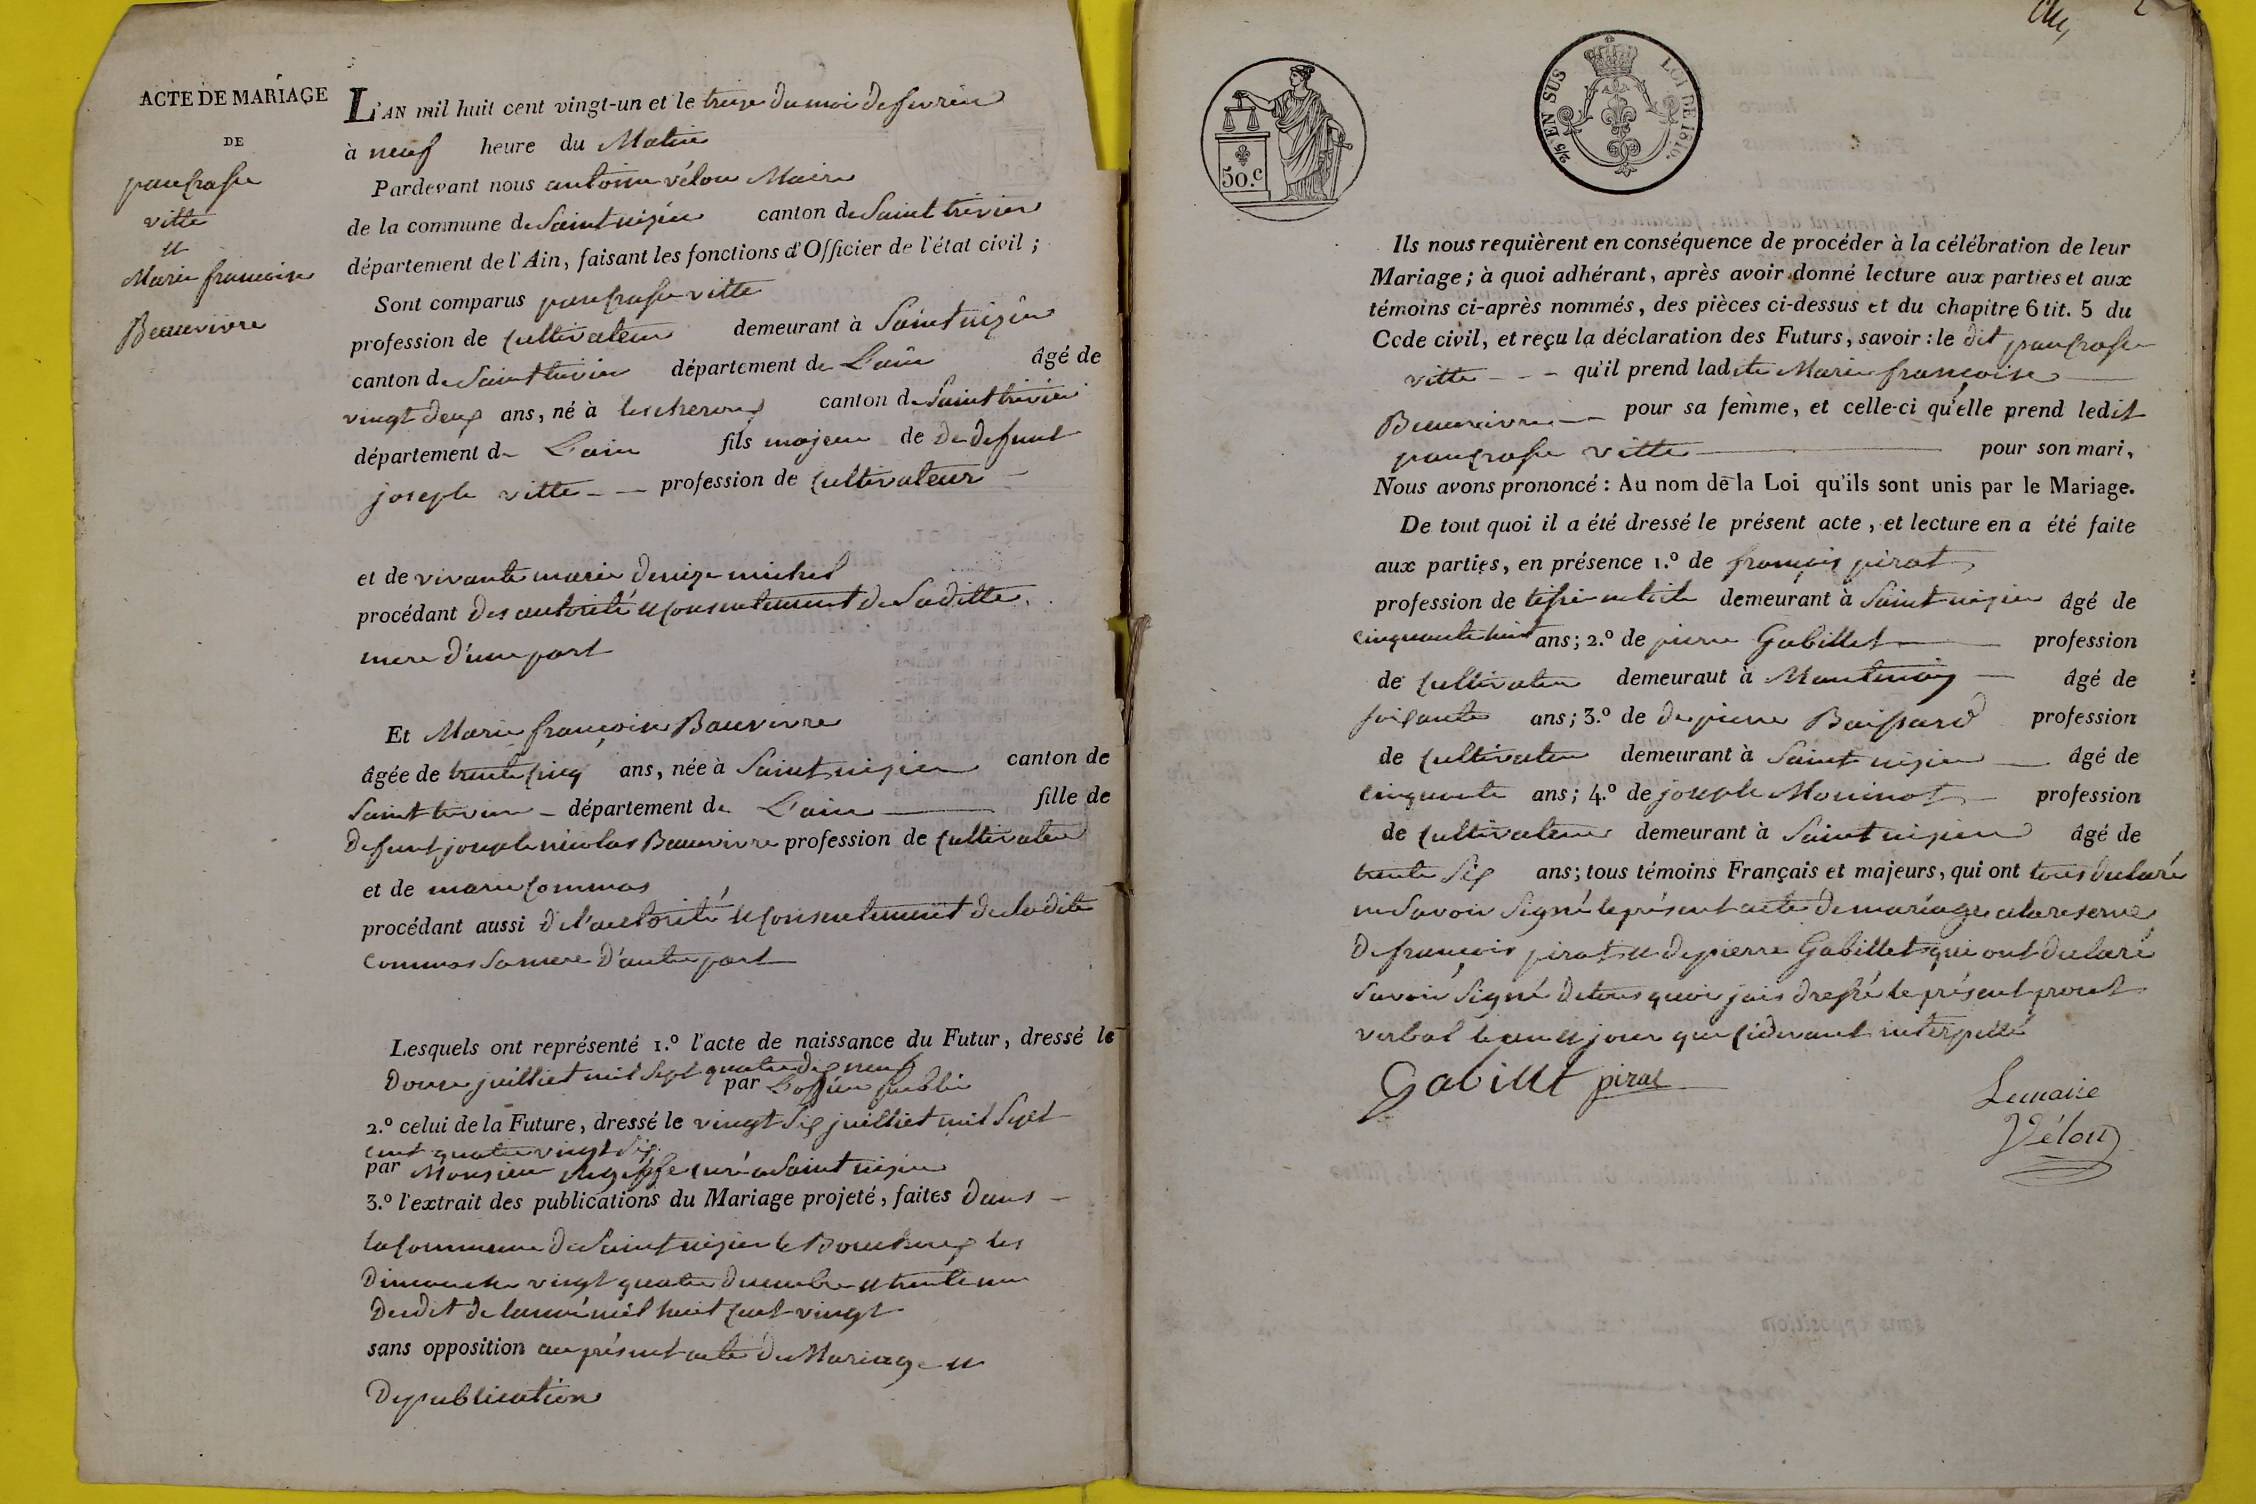 ACTE DE MARIAGE
DE
pancrasse
vitte
et
Marie francoise
Beauvivre
L'AN mil huit cent vingt-un et le treize du moi de fevrier
à neuf heure du Matin
Pardevant nous antoine vélou Maire
de la commune de Saint nizier canton de Saint trivier
département de l'Ain, faisant les fonctions d'Officier de l'état civil ;
Sont comparus pancrasse vitte
profession de cultivateur demeurant à Saint nizier
canton de Saint trivier département de L'ain âgé de
vingt deux ans, né à lescheroux canton de Saint trivier
département de L'ain fils majeur de De defunt
joseph vitte profession de cultivateur
et de vivante marie denize michel
procédant des autorité et consentement de Saditte
mere d'une part
Et Marie françoise Bauvivre
âgée de trente cinq ans, née à Saint nizier canton de
Saint trivier département de L'ain fille de
Defunt joseph nicolas Beauvivre profession de cultivateur
et de marie commas
procédant aussi de l'autorité et consentement de ladite
commas Sa mere D'autre part
Lesquels ont représenté 1.º l'acte de naissance du Futur, dressé le
Douze juilliet mil Sept quatre dix neuf
par L'officier public
2.º celui de la Future, dressé le vingt Six juilliet mil Sept
cent quatre vingt Six
par Monsieur curé a Saint nizier
3.º l'extrait des publications du Mariage projeté, faites Dans
la commune de Saint nizier le Bouchoux les
Dimanche vingt quatre decembre et trente un
Dudit de lanné mil huit cent vingt
sans opposition au présent acte de Mariage et
De publication
50.C
2/5 EN SUS
LOI DE 1816.
Ils nous requièrent en conséquence de procéder à la célébration de leur
Mariage ; à quoi adhérant, après avoir donné lecture aux parties et aux
témoins ci-après nommés, des pièces ci-dessus et du chapitre 6 tit. 5 du
Code civil, et reçu la déclaration des Futurs, savoir : le dit pancrasse
vitte - - - qu'il prend ladite Marie françoise
Beauvivre pour sa femme, et celle-ci qu'elle prend ledit
pancrasse vitte pour son mari,
Nous avons prononcé : Au nom de la Loi qu'ils sont unis par le Mariage.
De tout quoi il a été dressé le présent acte, et lecture en a été faite
aux parties, en présence 1.º de françois pirat
profession de demeurant à Saint nizier âgé de
cinquante huit ans ; 2.º de pierre Gabillet profession
de cultivateur demeuraut à âgé de
soixante ans ; 3.º de de pierre Boissard profession
de cultivateur demeurant à Saint nizier âgé de
cinquante ans ; 4.º de joseph Moninot profession
de cultivateur demeurant à Saint nizier âgé de
trente Six ans ; tous témoins Français et majeurs, qui ont tous declaré
ne Savoir Signé le présent acte de mariage a la reserve
De françois pirat et de pierre Gabillet qui ont declaré
Savoir Signé de tous quoi jais dressé le présent procet
verbal le an et jour que cidevant interpellé
Gabillet pirat
Lemaire
Vélou